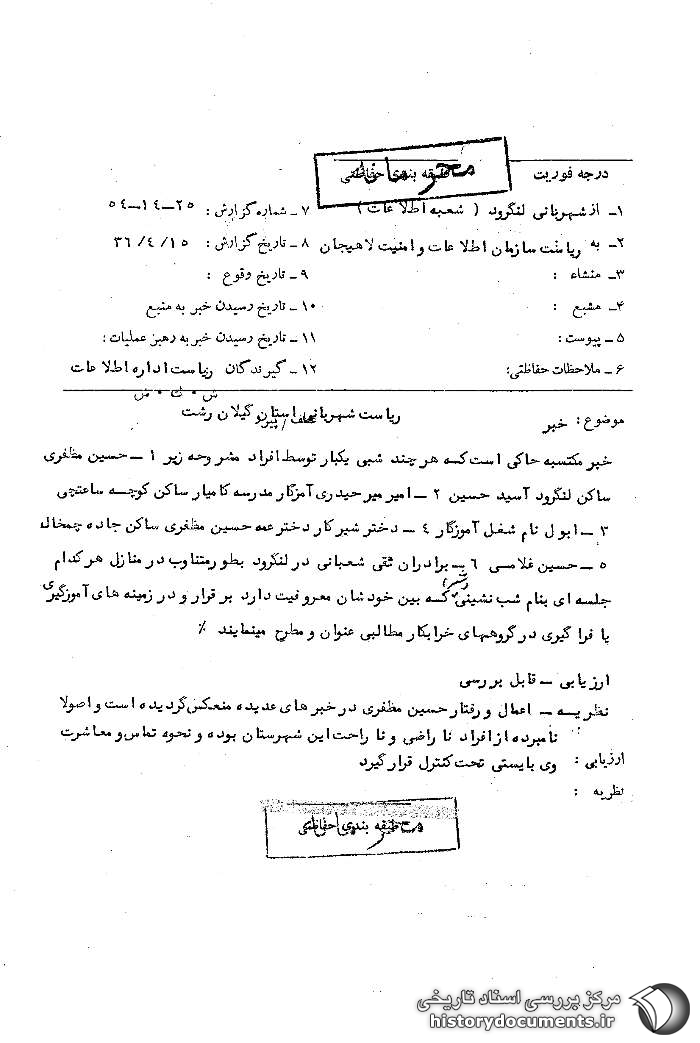 محرمانه
درجه فوریت طبقه بندی حفاظتی
۱ـ از شهربانی لنگرود ( شعبه اطلاعات ) ۷ـ شماره گزارش : ۲۵ــ۱۴ــ۵۴
۲ـ به ریاست سازمان اطلاعات و امنیت لاهیجان ۸ ـ تاریخ گزارش : ۳۶/۴/۱۵
۳ـ منشاء : ۹ ـ تاریخ وقوع :
۴ـ منبع : ۱۰ ـ تاریخ رسیدن خبر به منبع
۵ ـ پیوست : ۱۱ ـ تاریخ رسیدن خبر به رهبر عملیات :
۶ ـ ملاحظات حفاظتی: ۱۲ـ گیرندگان ریاست اداره اطلاعات
ش . ك . ش
موضوع : خبر ریاست شهربانی استان گیلان رشت
خبر مکتسبه حاکی است که هر چند شبی یکبار توسط افراد مشروحه زیر ۱ ــ حسین مظفری
ساکن لنگرود آسید حسین ۲ ــ امیر میر حیدری آموزگار مدرسه کامیار ساکن کوچه ساعتچی
۳ ــ ابول نام شغل آموزگار ۴ ــ دختر شیرکار دختر عمه حسین مظفری ساکن جاده چمخاله
۵ ــ حسین غلامی ۶ ــ برادران ثقی شعبانی در لنگرود بطور متناوب در منازل هر کدام
جلسه ای بنام شب نشینی که بین خودشان معروفیت دارد بر قرار و در زمینه های آموزگیری
یا فراگیری در گروههای خرابکار مطالبی عنوان و مطرح مینمایند ٪
ارزیابی ــ قابل بررسی
نظریه ــ اعمال و رفتار حسین مظفری در خبر های عدیده منعکس گردیده است و اصولا
نامبرده از افراد نا راضی و نا راحت این شهرستان بوده و نحوه تماس و معاشرت
ارزیابی : وی بایستی تحت کنترل قرار گیرد
نظریه :
طبقه بندی حفاظتی
مرکز بررسی اسناد تاریخی
historydocuments.ir